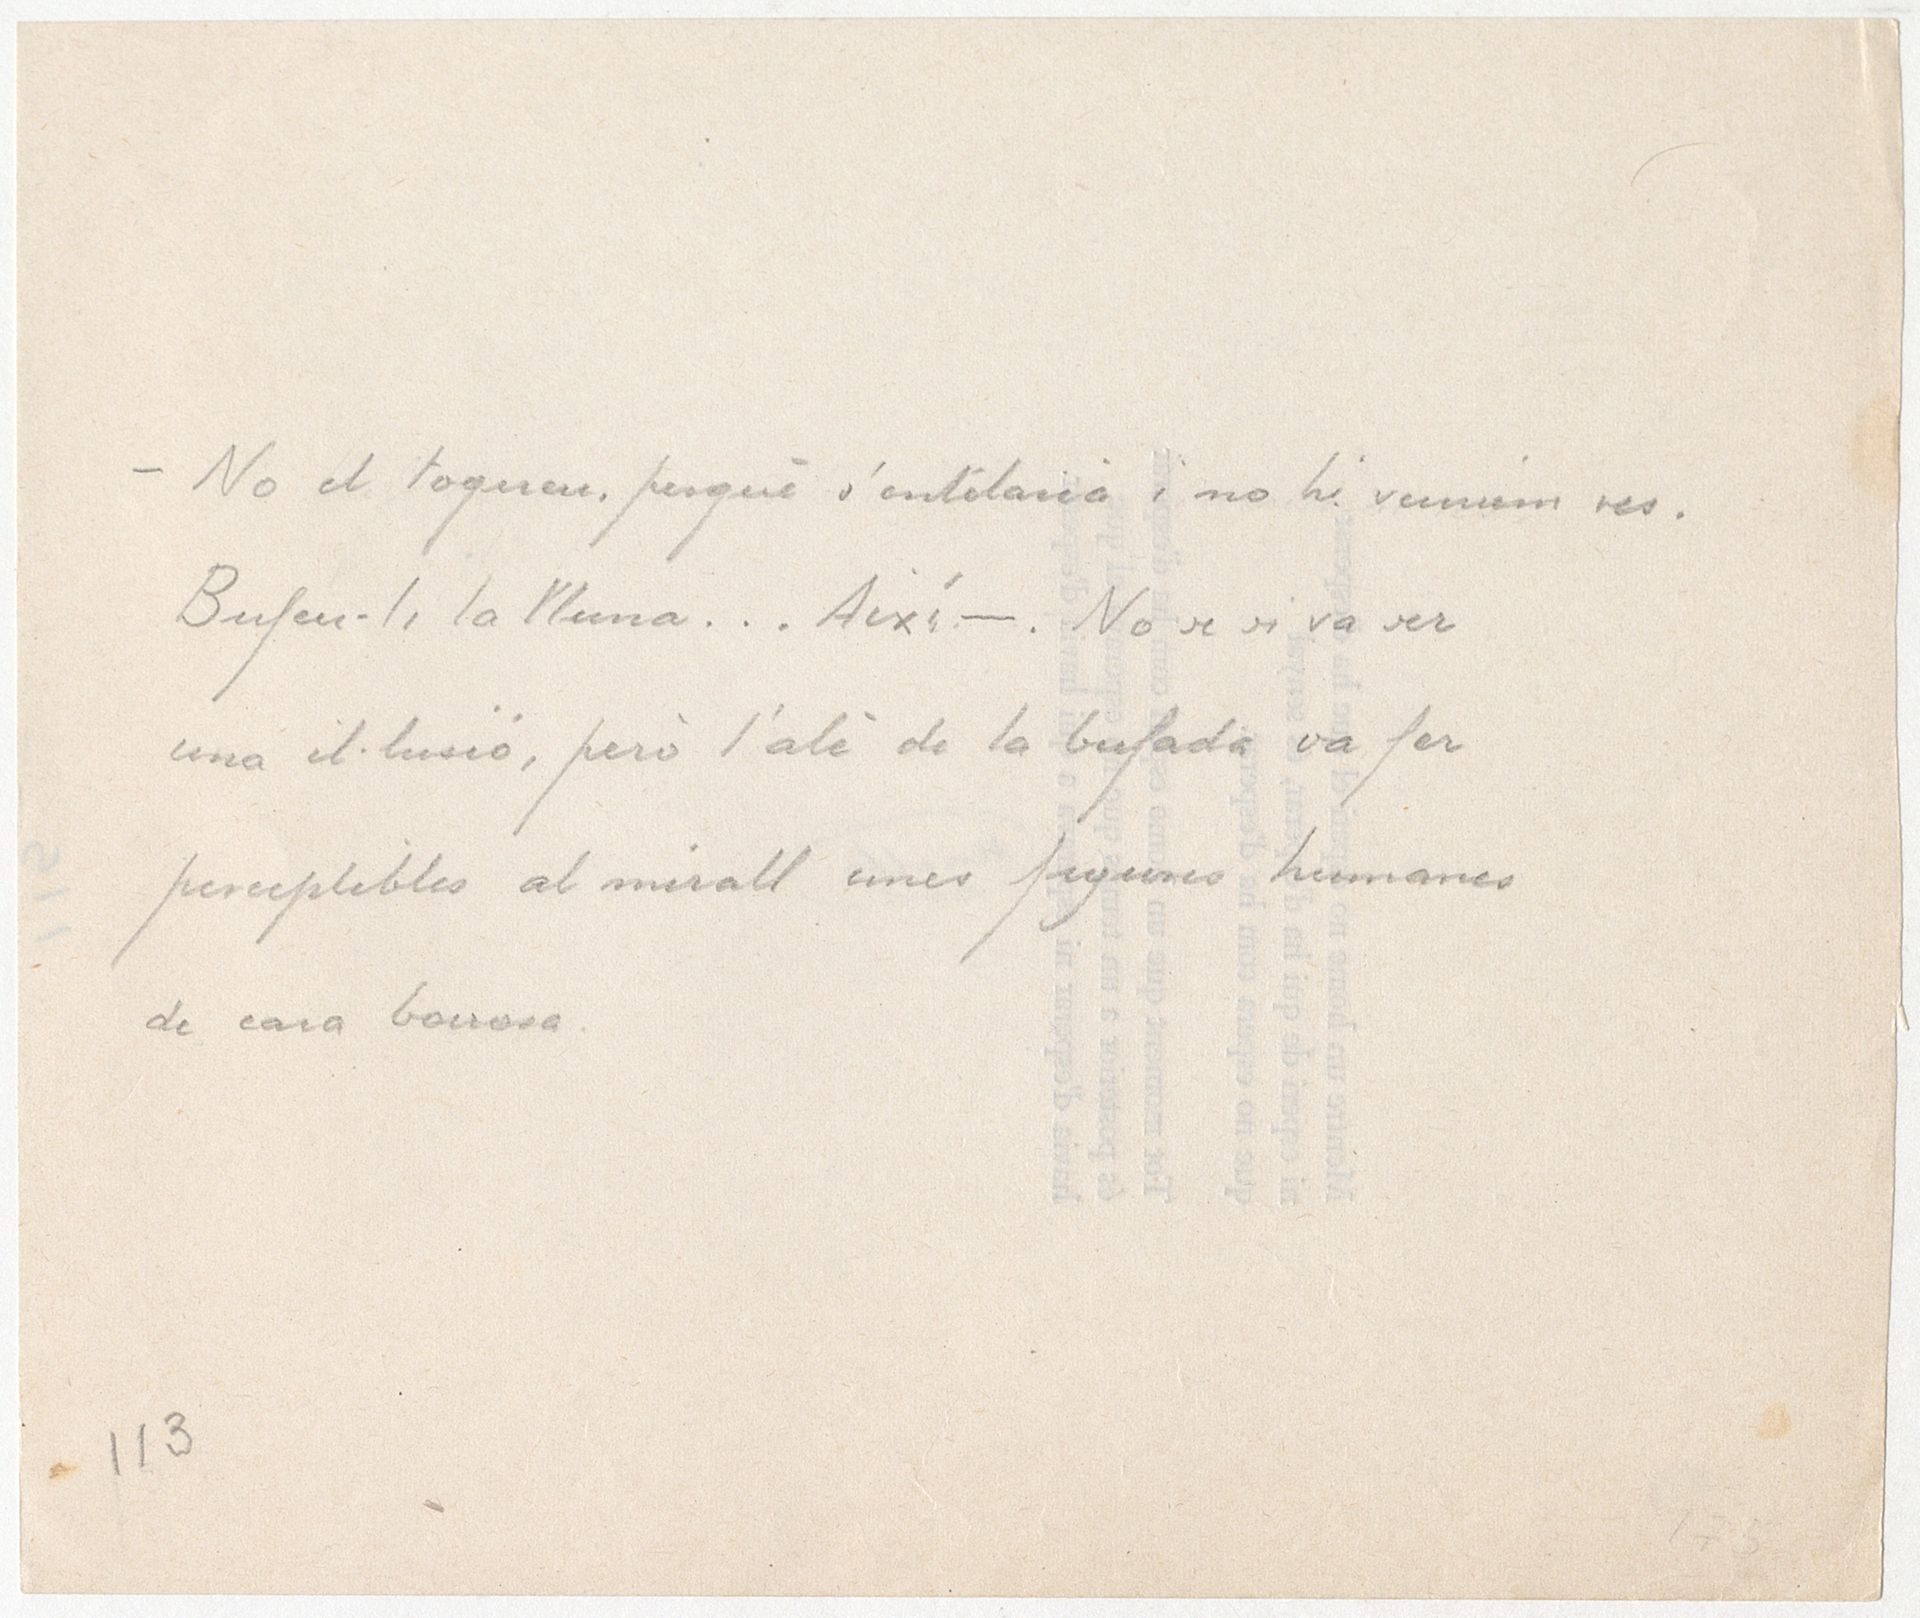 – No el toqueu, perquè s'entelaria i no hi veuríem res.
Bufeu-li la lluna... Així —. No se si va ser
una il·lusió, però l'alè de la bufada va fer
perceptibles al mirall unes figures humanes
de cara borrosa.
113
173